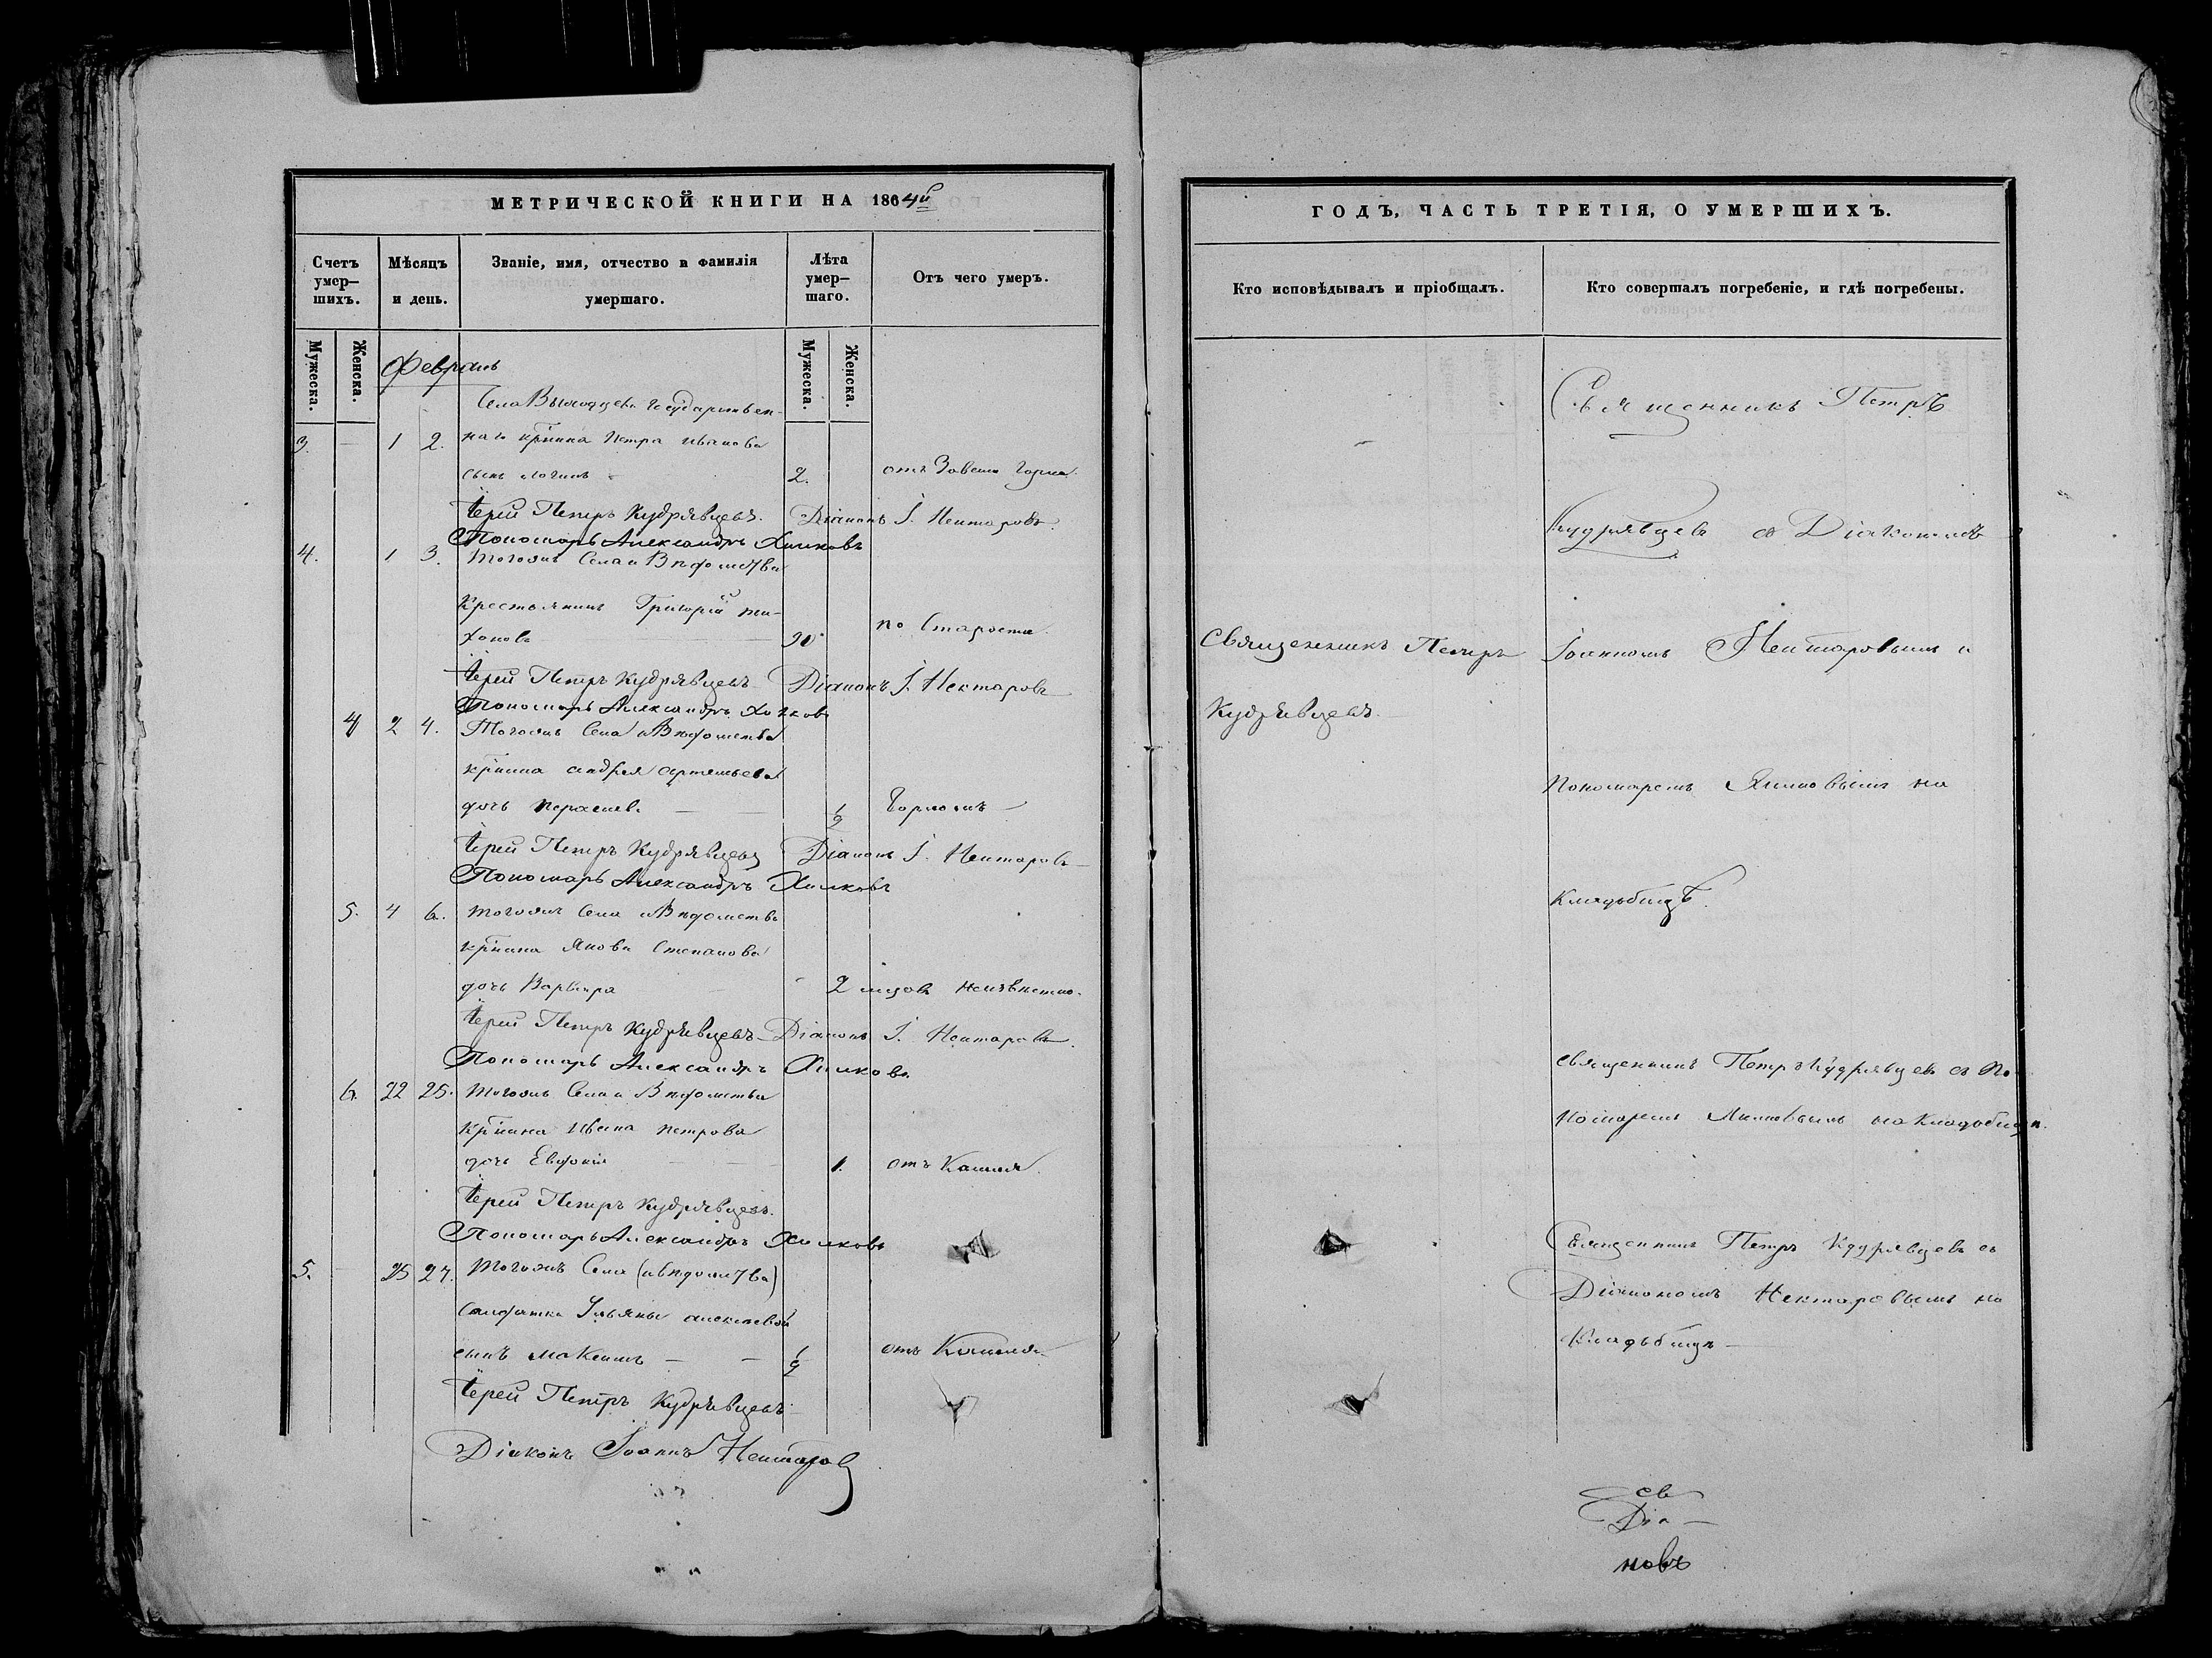 МЕТРИЧЕСКОЙ КНИГИ НА 1864й
Счетъ умер-шихъ.
Мѣсяцъ и день.
Званіе, имя, отчество и фамилія умершаго.
Лѣта умер-шаго.
Отъ чего умеръ.
Мужеска.
Женска.
Мужеска.
Женска.
Февраль
Села Государствен-
3. — 1 2. наго крнина Петра Иванова
сынъ Логинъ 2. отъ горла.
Іерей Петръ Кудрявцевъ. Діаконъ І. Нектаровъ.
Пономарь Александръ Хилковъ
4. 1 3. Тогожъ Села и Вѣдомства
Крестьянинъ Григорій Ти-
хоновъ 90 по Старости.
Іерей Петръ Кудрявцевъ Діаконъ І. Нектаровъ
Пономарь Александръ Хилковъ
4 2 4. Тогожъ Села и Вѣдомства
крнина Андрея Артемьева
дочь 1/2
Іерей Петръ Кудрявцевъ Діаконъ І. Нектаровъ
Пономарь Александръ Хилковъ
5. 4 6. Тогожъ Села и Вѣдомства
крнина Якова Степанова
дочь Варвара 2 неизвѣстно.
Іерей Петръ Кудрявцевъ Діаконъ І. Нектаровъ.
Пономарь Александръ Хилковъ
6. 22 25. Тогожъ Села и Вѣдомства
Крнина Ивана Петрова
дочь 1. отъ Кашля.
Іерей Петръ Кудрявцевъ.
Пономарь Александръ Хилковъ
5. 25 27. Тогожъ Села (и вѣдомства)
Солдатки Ульяны Алексѣевой
сынъ Максимъ — — 1/2 отъ Кашля
Іерей Петръ Кудрявцевъ
Діаконъ Іоаннъ Нектаровъ
ГОДЪ, ЧАСТЬ ТРЕТІЯ, О УМЕРШИХЪ.
Кто исповѣдывалъ и пріобщалъ.
Кто совершалъ погребеніе, и гдѣ погребены.
Священникъ Петръ
Кудрявцевъ.
Священникъ Петръ
Кудрявцевъ съ Діакономъ
Іоанномъ Нектаровымъ и
Пономаремъ Хилковымъ на
Кладбищѣ.
Священникъ Петръ Кудрявцевъ съ По-
номаремъ Хилковымъ на Кладбищѣ.
Священникъ Петръ Кудрявцевъ съ
Діакономъ Нектаровымъ на
Кладбищѣ —
св
Діа —
новъ